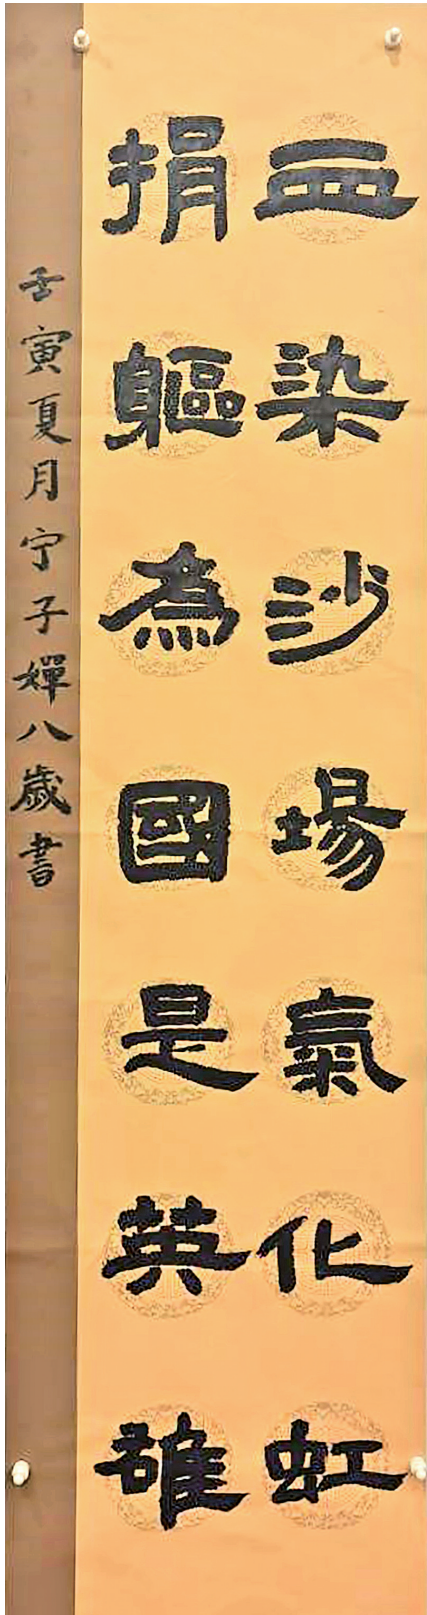 血染沙場氣化虹
捐軀為國是英雄
壬寅夏月宁子嬋八歲書